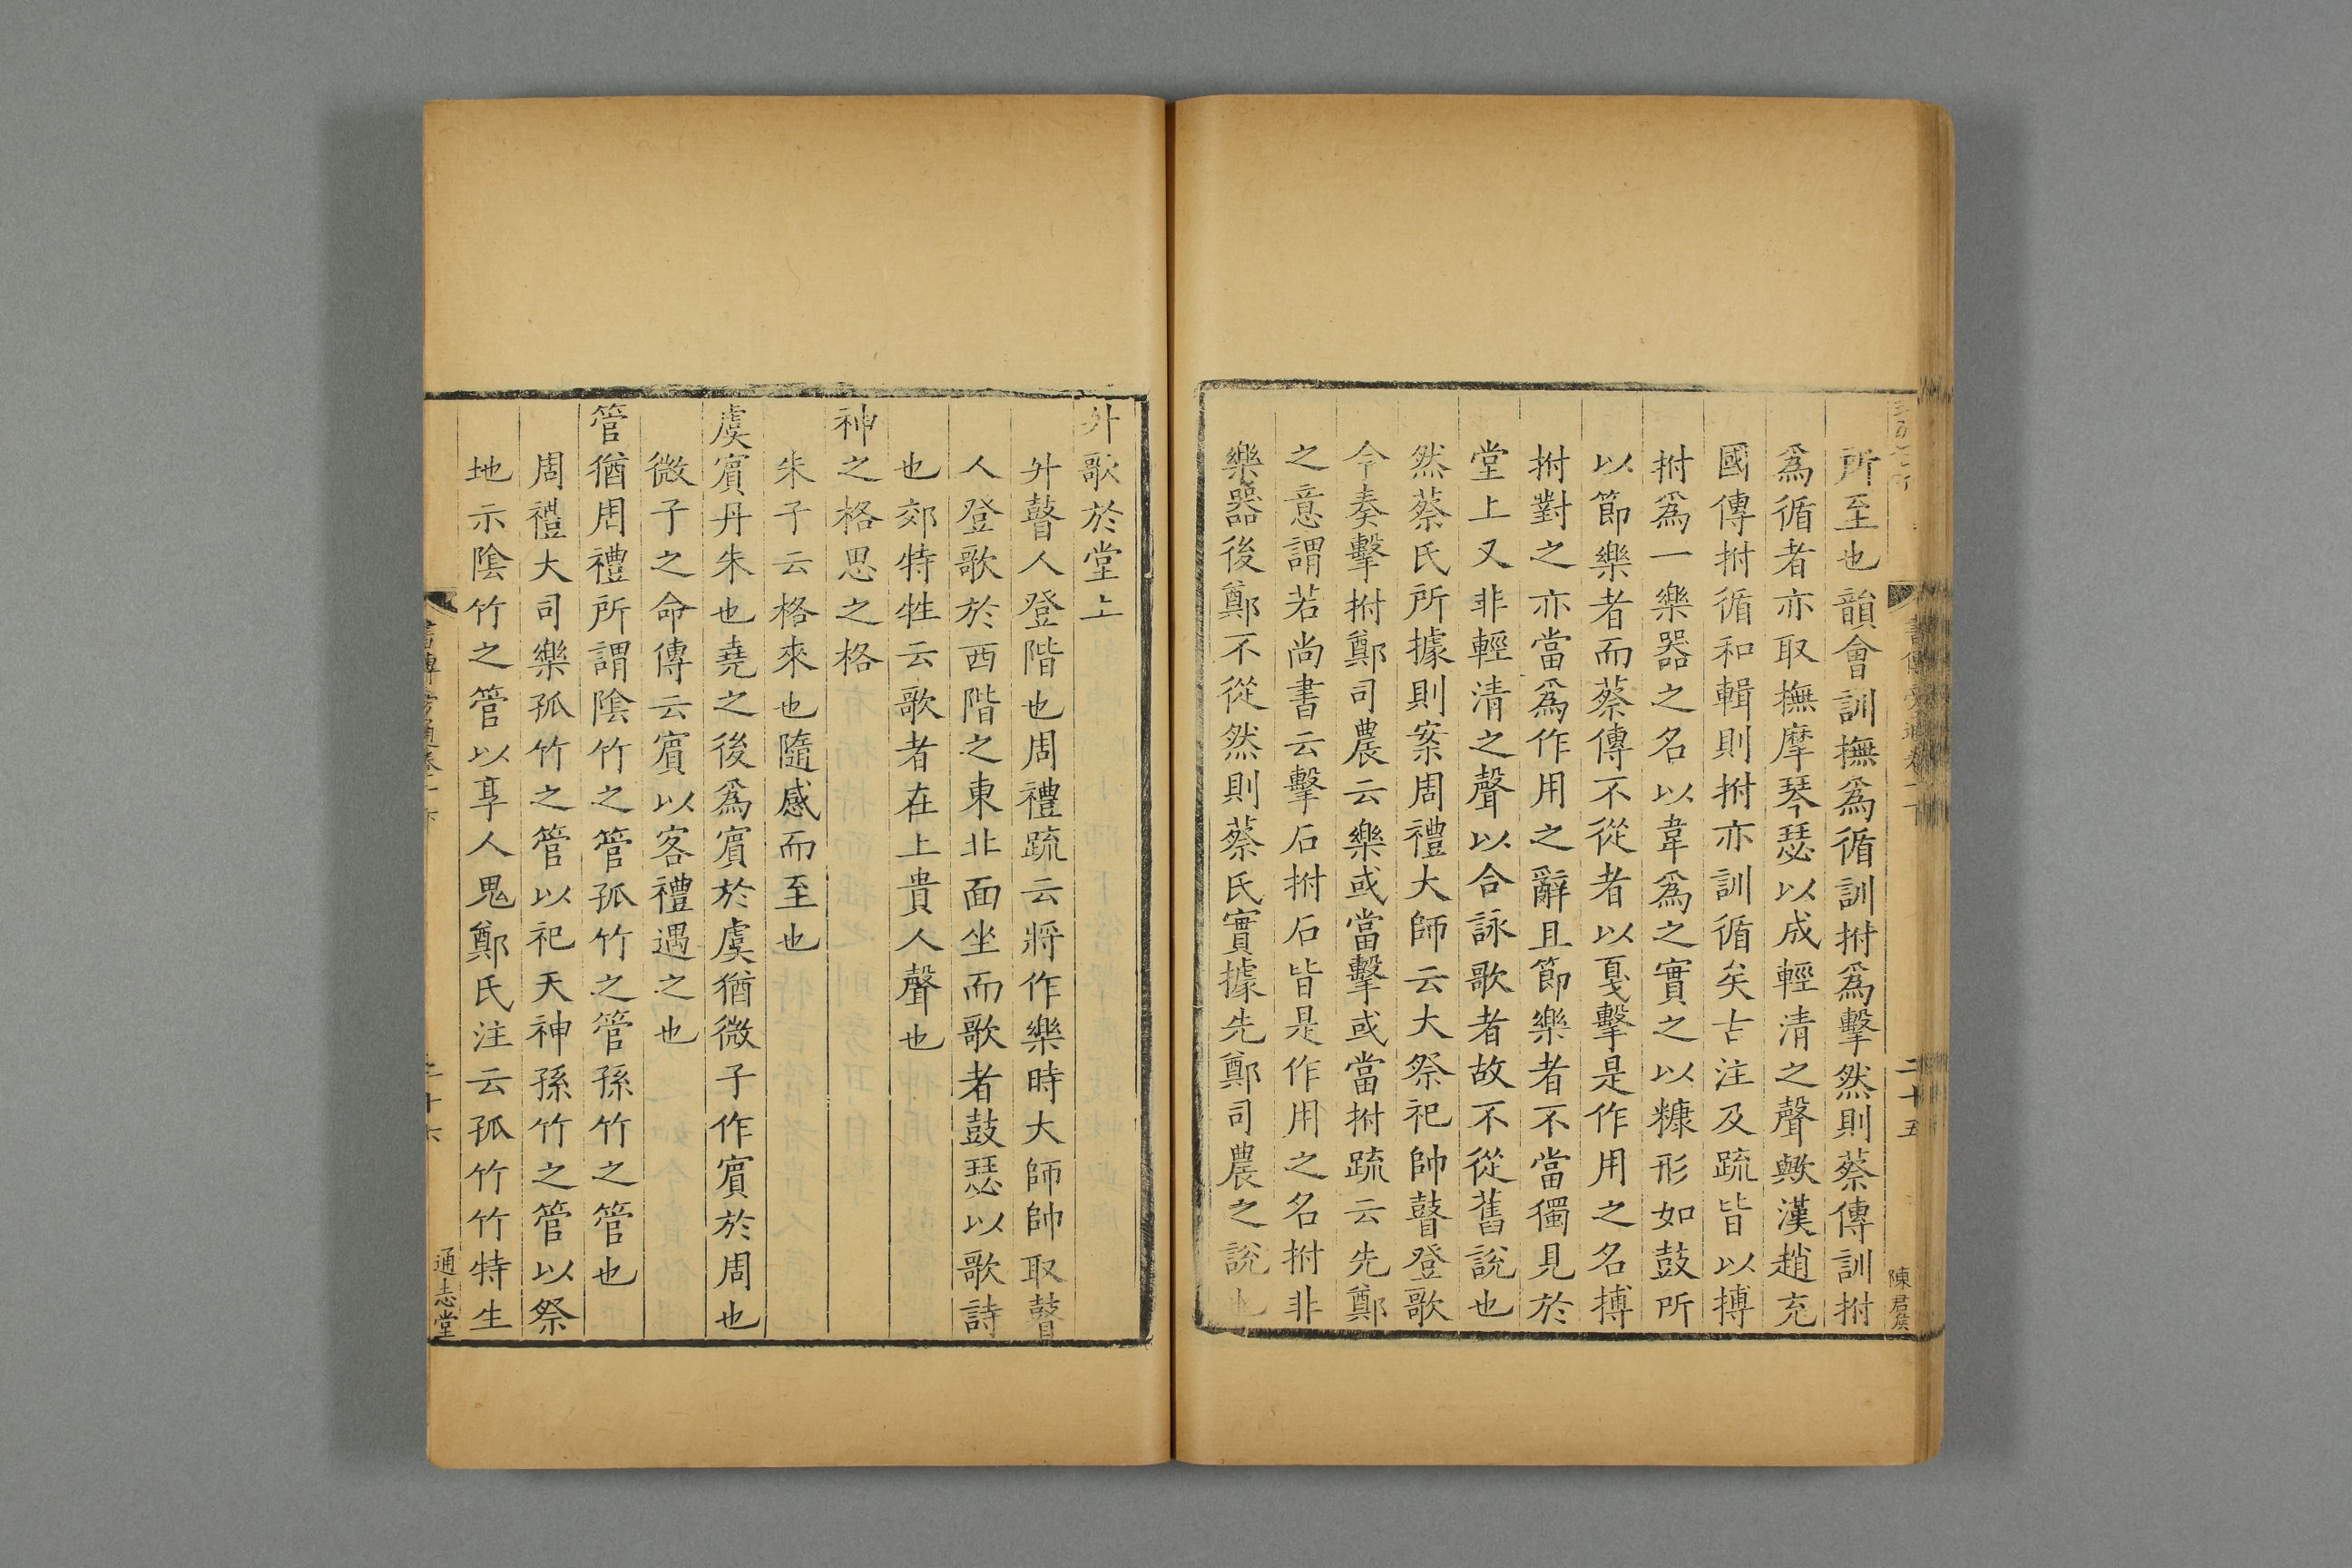 所至也韻會訓撫爲循訓拊爲擊然則蔡傳訓拊
爲循者亦取撫摩琴瑟以成輕清之聲歟漢趙充
國傳拊循和輯則拊亦訓循矣古注及疏皆以搏
拊爲一樂器之名以韋爲之實之以糠形如鼓所
以節樂者而蔡傳不從者以戛擊是作用之名搏
拊對之亦當爲作用之辭且節樂者不當獨見於
堂上又非輕清之聲以合詠歌者故不從舊說也
然蔡氏所據則案周禮大師云大祭祀帥瞽登歌
令奏擊拊鄭司農云樂或當擊或當拊疏云先鄭
之意謂若尚書云擊石拊石皆是作用之名拊非
樂器後鄭不從然則蔡氏實據先鄭司農之說也
二十五
陳君侯
升歌於堂上
升瞽人登階也周禮疏云將作樂時大師帥取瞽
人登歌於西階之東北面坐而歌者鼓瑟以歌詩
也郊特牲云歌者在上貴人聲也
神之格思之格
朱子云格來也隨感而至也
虞賓丹朱也堯之後爲賓於虞猶微子作賓於周也
微子之命傳云賓以客禮遇之也
管猶周禮所謂陰竹之管孤竹之管孫竹之管也
周禮大司樂孤竹之管以祀天神孫竹之管以祭
地示陰竹之管以享人鬼鄭氏注云孤竹竹特生
通志堂